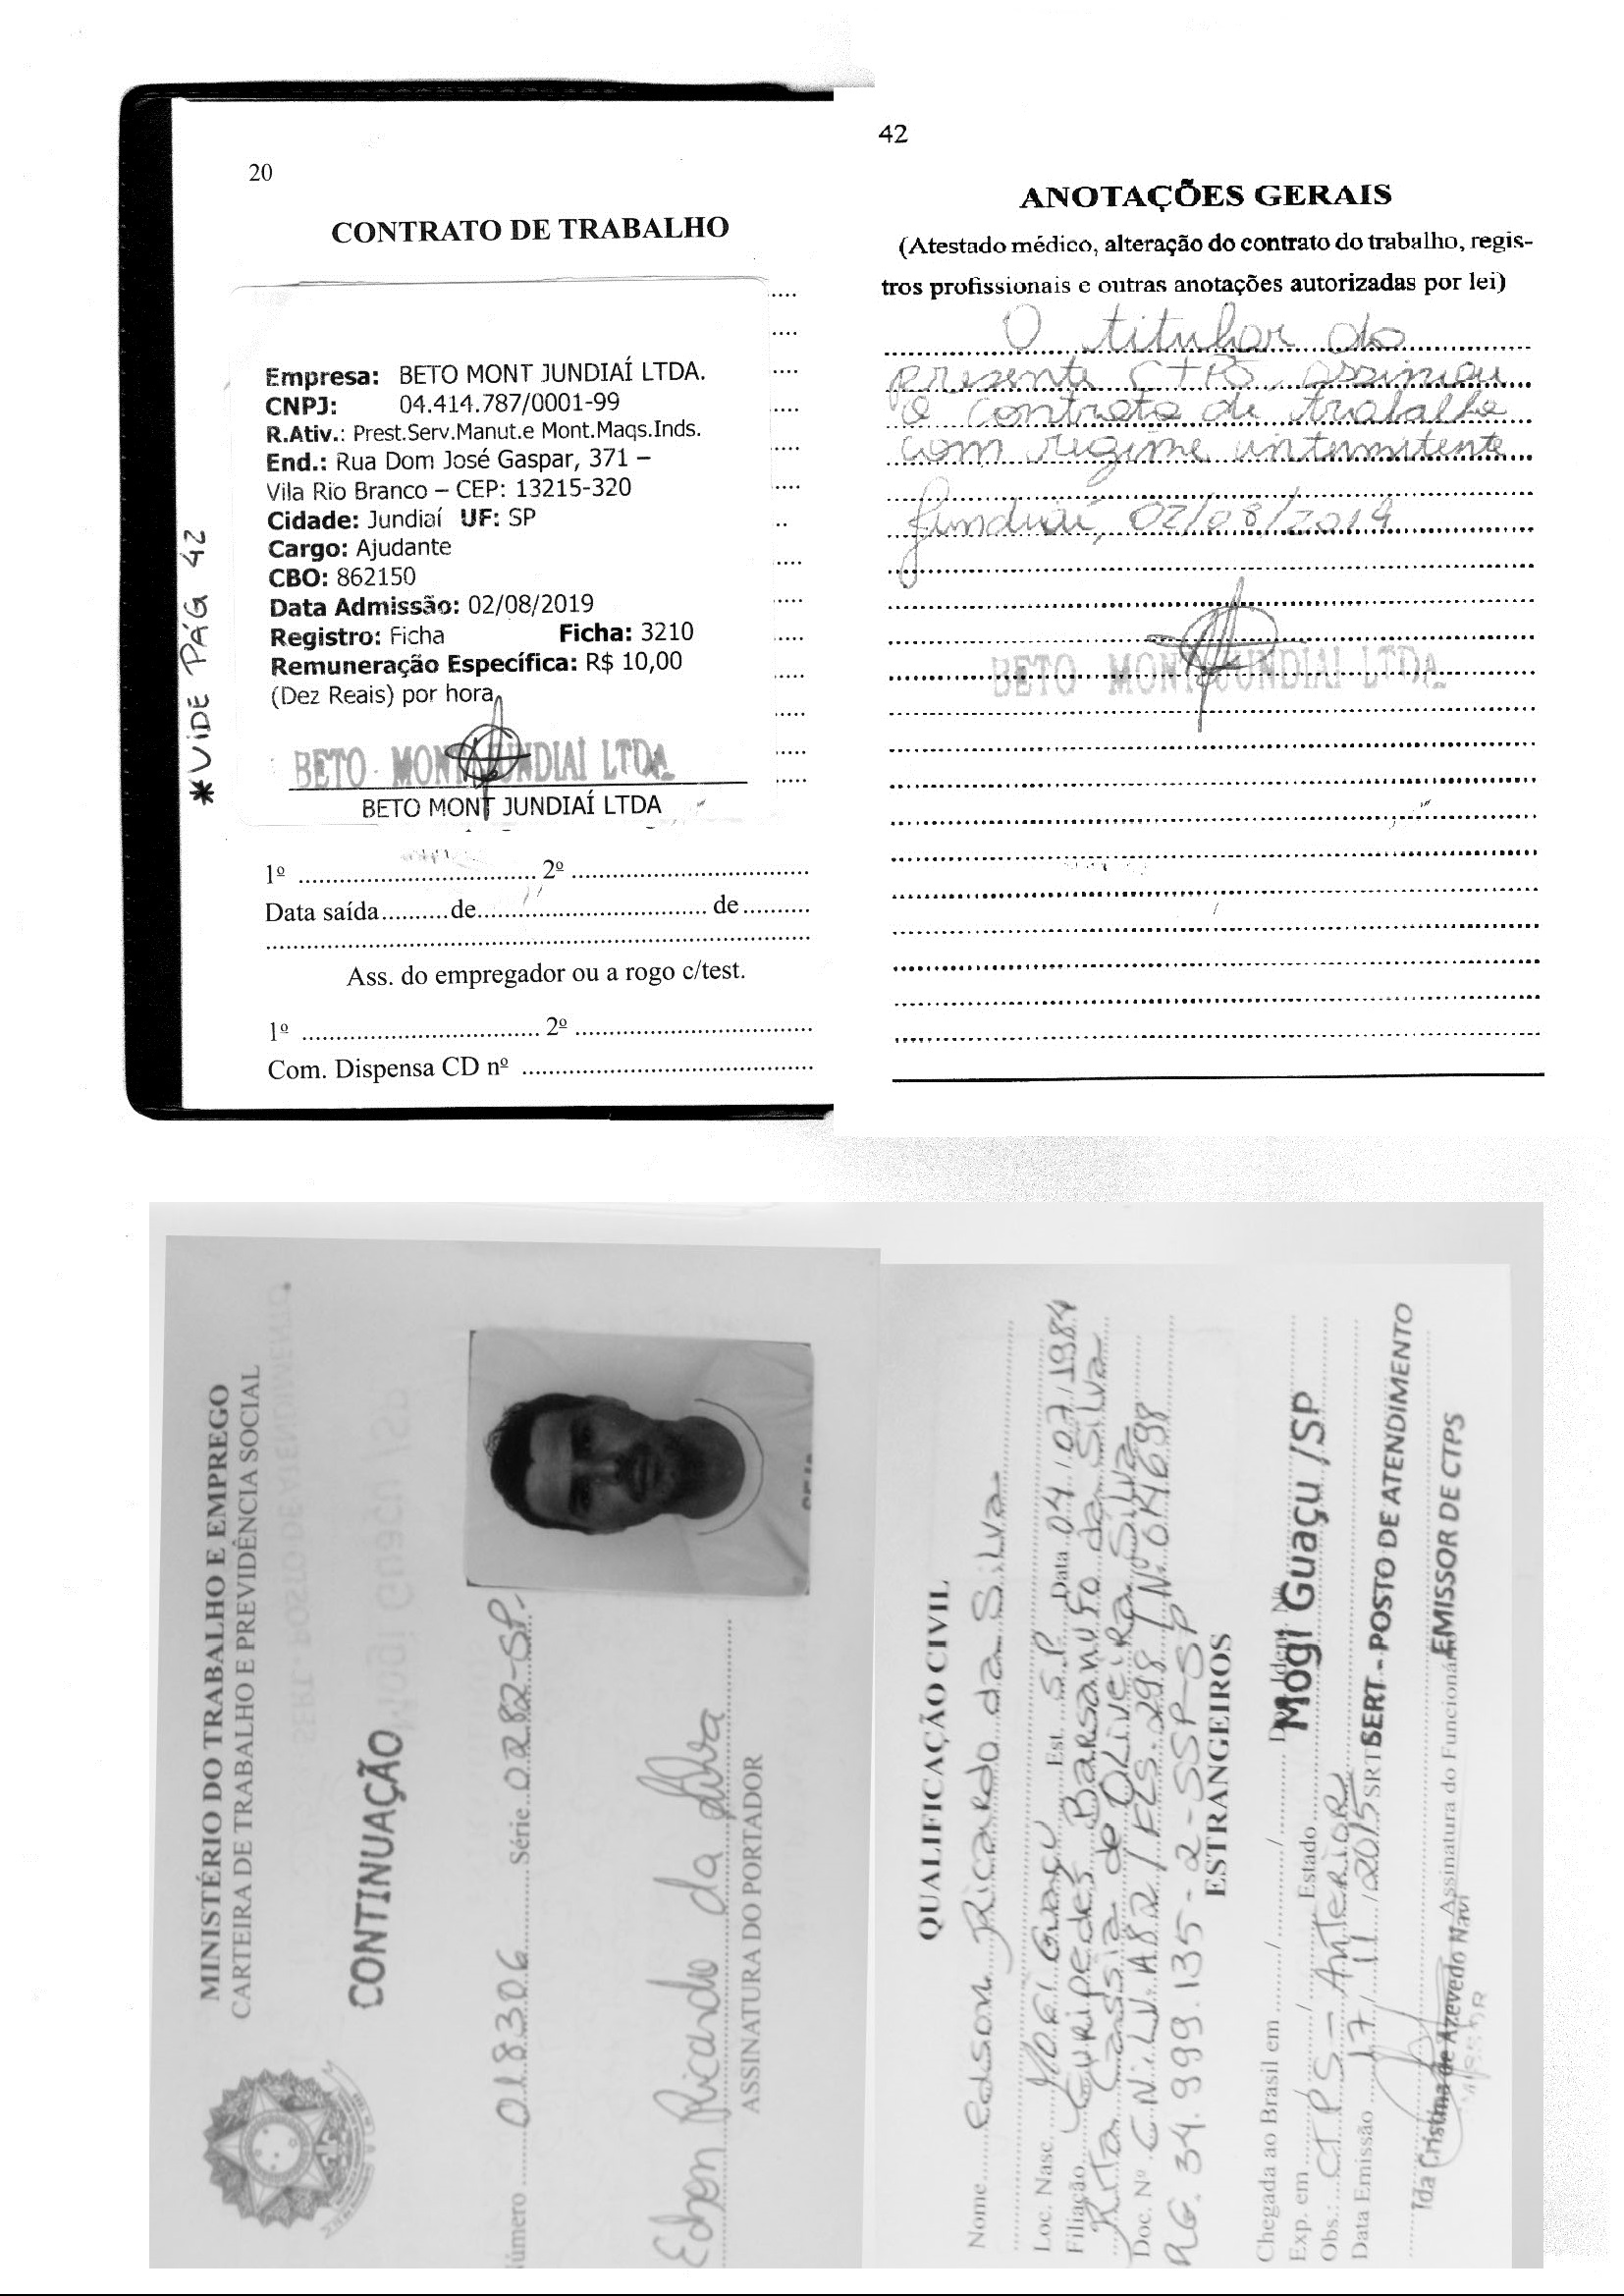 20
CONTRATO DE TRABALHO
Empresa: BETO MONT JUNDIAÍ LTDA.
CNPJ: 04.414.787/0001-99
R.Ativ.: Prest.Serv.Manut.e Mont.Maqs.Inds.
End.: Rua Dom José Gaspar, 371 –
Vila Rio Branco – CEP: 13215-320
Cidade: Jundiaí UF: SP
Cargo: Ajudante
CBO: 862150
Data Admissão: 02/08/2019
Registro: Ficha Ficha: 3210
Remuneração Específica: R$ 10,00
(Dez Reais) por hora
BETO MONT JUNDIAÍ LTDA.
BETO MONT JUNDIAÍ LTDA
*VIDE PÁG 42
1º ........ 2º ........
Data saída ........ de ........ de ........
Ass. do empregador ou a rogo c/test.
1º ........ 2º ........
Com. Dispensa CD nº ........
42
ANOTAÇÕES GERAIS
(Atestado médico, alteração do contrato do trabalho, regis-
tros profissionais e outras anotações autorizadas por lei)
O titular do
presente CTPS assinou
o contrato de trabalho
com regime intermitente
Jundiaí, 02/08/2019
BETO MONT JUNDIAI LTDA.
MINISTÉRIO DO TRABALHO E EMPREGO
CARTEIRA DE TRABALHO E PREVIDÊNCIA SOCIAL
CONTINUAÇÃO
Número 018306 Série 0282-SP.
Edson Ricardo da Silva
ASSINATURA DO PORTADOR
QUALIFICAÇÃO CIVIL
Nome Edson Ricardo da Silva
Loc. Nasc. Mogi Guaçu Est. S.P Data 04/07/1984
Filiação Euripedes Barsanufo da Silva
Rita Cassia de Oliveira Silva
Doc. Nº C.N. LV. A82 / FLS. 298 / Nº
RG. 34.999.135-2-SSP-SP
ESTRANGEIROS
Chegada ao Brasil em ....../....../...... Doc. Ident. Nº
Exp. em ....../....../...... Estado
Mogi Guaçu /SP
Obs.: CTPS - Anterior
Data Emissão 17/11/2015 SRT
SERT - POSTO DE ATENDIMENTO
Assinatura do Funcionário
EMISSOR DE CTPS
Ida Cristina de Azevedo Navi